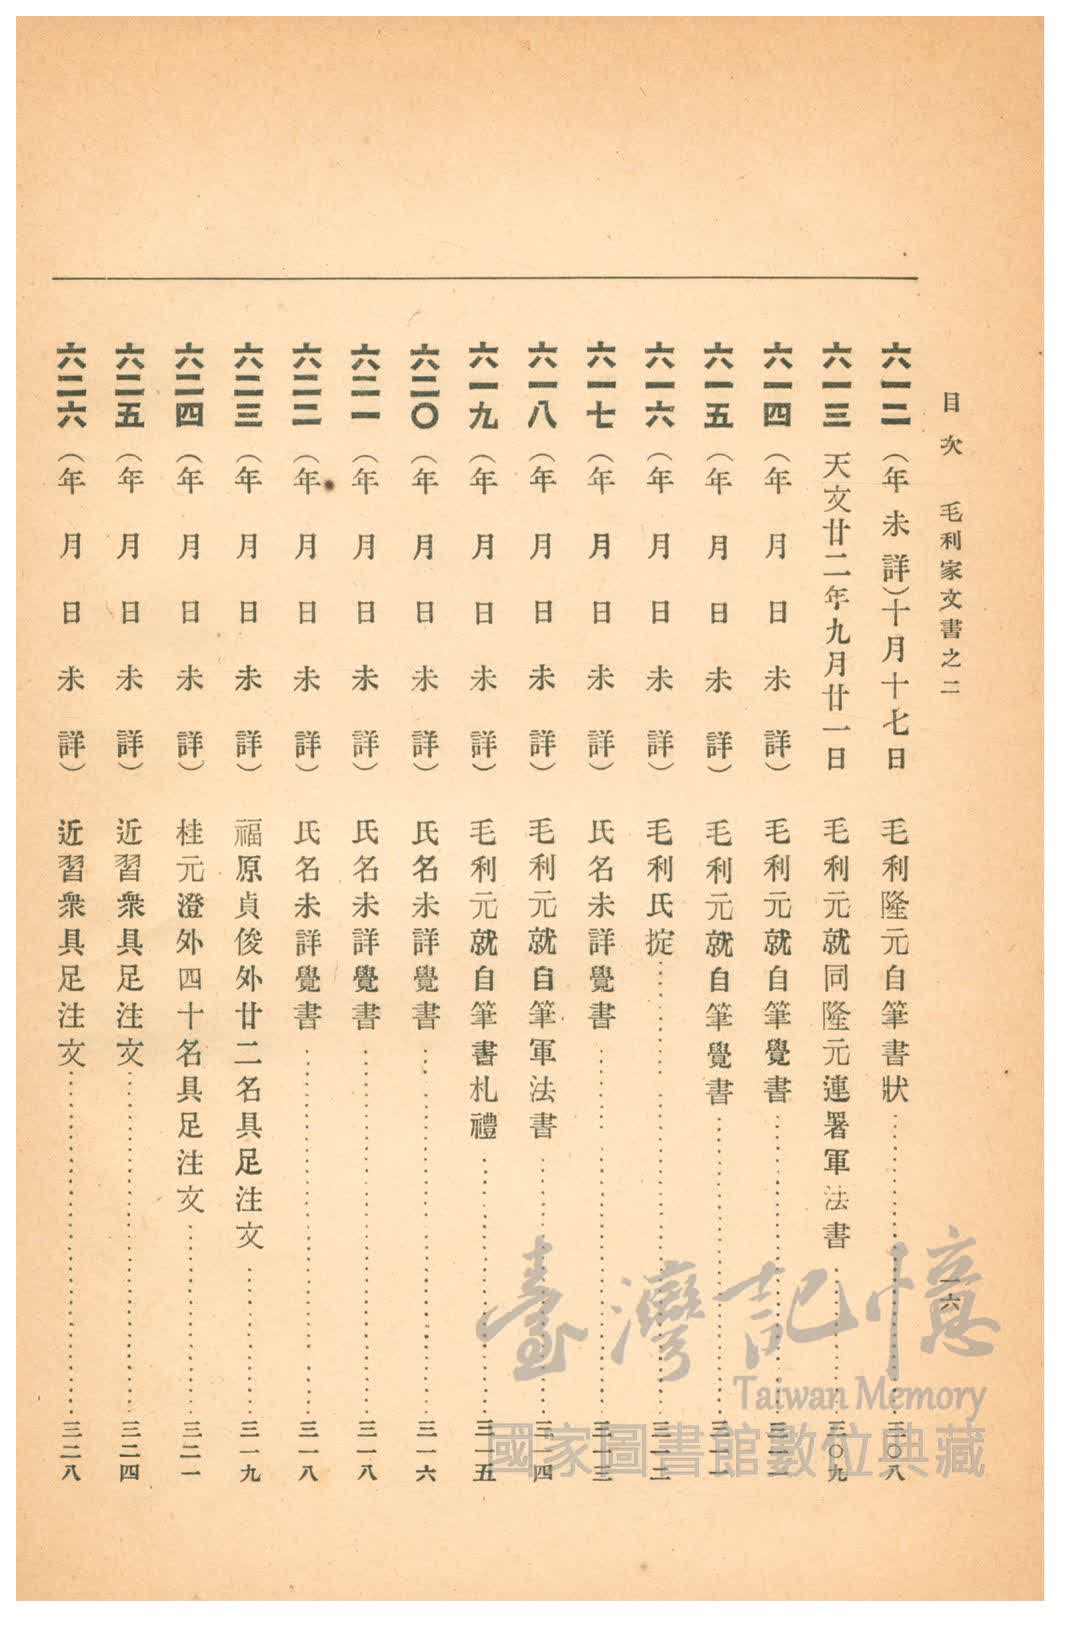 目次 毛利家文書之二
一六
六一二 (年未詳)十月十七日 毛利隆元自筆書狀……三〇八
六一三 天文廿二年九月廿一日 毛利元就同隆元連署軍法書……三〇九
六一四 (年月日未詳) 毛利元就自筆覺書……三一一
六一五 (年月日未詳) 毛利元就自筆覺書……三一一
六一六 (年月日未詳) 毛利氏掟……三一二
六一七 (年月日未詳) 氏名未詳覺書……三一三
六一八 (年月日未詳) 毛利元就自筆軍法書……三一四
六一九 (年月日未詳) 毛利元就自筆書札禮……三一五
六二〇 (年月日未詳) 氏名未詳覺書……三一六
六二一 (年月日未詳) 氏名未詳覺書……三一八
六二二 (年月日未詳) 氏名未詳覺書……三一八
六二三 (年月日未詳) 福原貞俊外廿二名具足注文……三一九
六二四 (年月日未詳) 桂元澄外四十名具足注文……三二一
六二五 (年月日未詳) 近習衆具足注文……三二四
六二六 (年月日未詳) 近習衆具足注文……三二八
臺灣記憶
Taiwan Memory
國家圖書館數位典藏